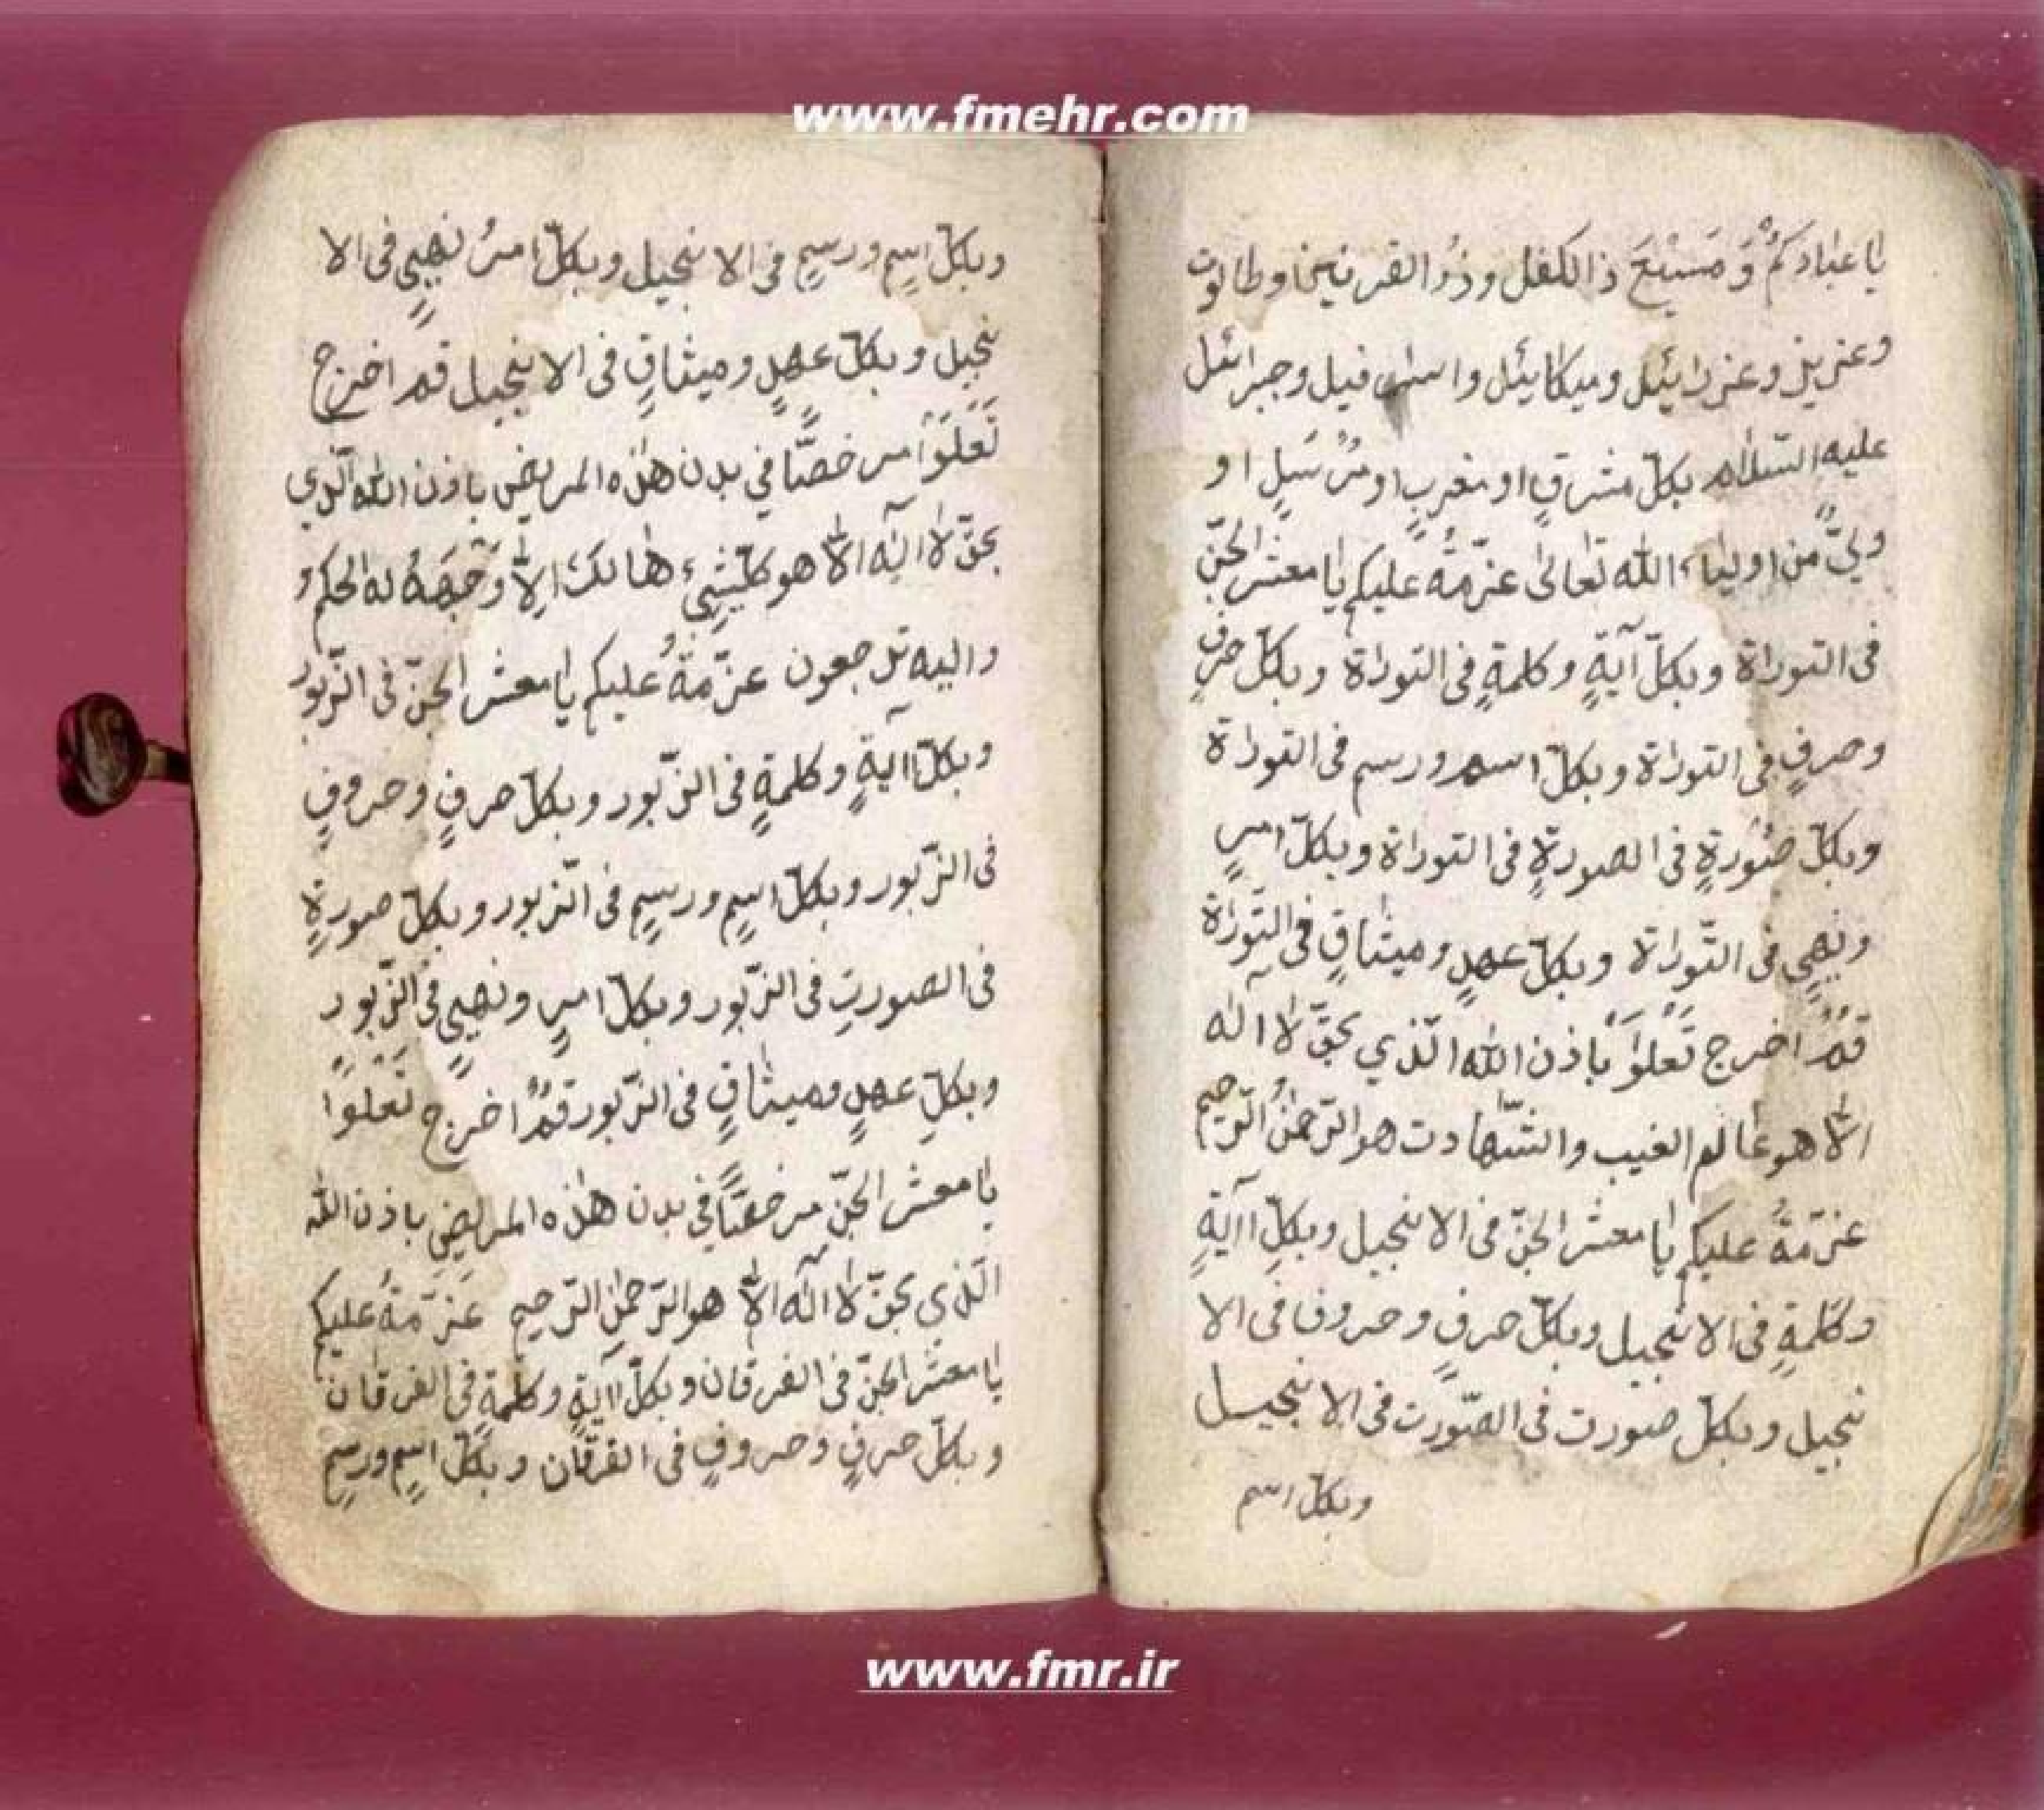 www.fmehr.com
يا عبادكم و مسيح ذالكفل وذو القرنين وطالوت
وعزيز وعزرائيل وميكائيل واسرافيل وجبرائيل
عليه السلام بكل مشرقٍ او مغربٍ او مُرسَلٍ او
وليٍّ من اولياء الله تعالى عزّمةُ عليكم يا معشر الجنّ
فى التوراة وبكلّ آيةٍ وكلمةٍ فى التوراة وبكلّ حرفٍ
وحرفٍ فى التوراة وبكلّ اسم ورسم فى التوراة
وبكلّ صُورةٍ فى الصورةٍ فى التوراة وبكلّ امرٍ
ونهيٍ فى التّوراة وبكلّ عهدٍ وميثاقٍ فى التّوراة
قمُ اخرج تَعلَوا باذن الله الّذي بحقّ لا اله
الّا هو عالم الغيب والشّهادت هو الرّحمنُ الرّحيم
عزّمةُ عليكم يا معشر الجنّ فى الانجيل وبكلِّ اآيةٍ
وكلمةٍ فى الانجيل وبكلّ حرفٍ وحروف فى الا
نجيل وبكلّ صورت فى الصّورت فى الانجيل
وبكلّ اسم
وبكلّ اسمٍ ورسمٍ فى الانجيل وبكلّ امرُ نهيىٍ فى الا
نجيل وبكلّ عهدٍ وميثاقٍ فى الانجيل قم اخرج
تَعَلَوَا مرخصًّا في بدن هٰذه المريض باذن الله الّذي
بحقّ لا اله الّا هو كلّشيىء هالك الّا وَجهَهُ له الحكم و
واليه ترجعون عزّمةُ عليكم يا معشر الجنّ فى الزّبور
وبكلّ اآيةٍ وكلمةٍ فى الزّبور وبكلّ حرفٍ وحروفٍ
فى الزّبور وبكلّ اسمٍ ورسمٍ فى الزّبور وبكلّ صورةٍ
فى الصورتِ فى الزّبور وبكلّ امرٍ ونهيىٍ فى الزّبور
وبكلِّ عهدٍ وميثاقٍ فى الزّبور قمُ اخرج تَعلَوا
يا معشر الجنّ مرخصًّا في بدن هٰذه المريضِ باذن الله
الّذي بحقّ لا اله الّا هو الرّحمن الرّحيم عَزّمةُ عليكم
يا معشر الجنّ فى الفرقان وبكلّ اآيةٍ وكلمةٍ فى الفرقان
وبكلّ حرفٍ وحروفٍ فى الفرقان وبكلّ اسمٍ ورسمٍ
www.fmr.ir